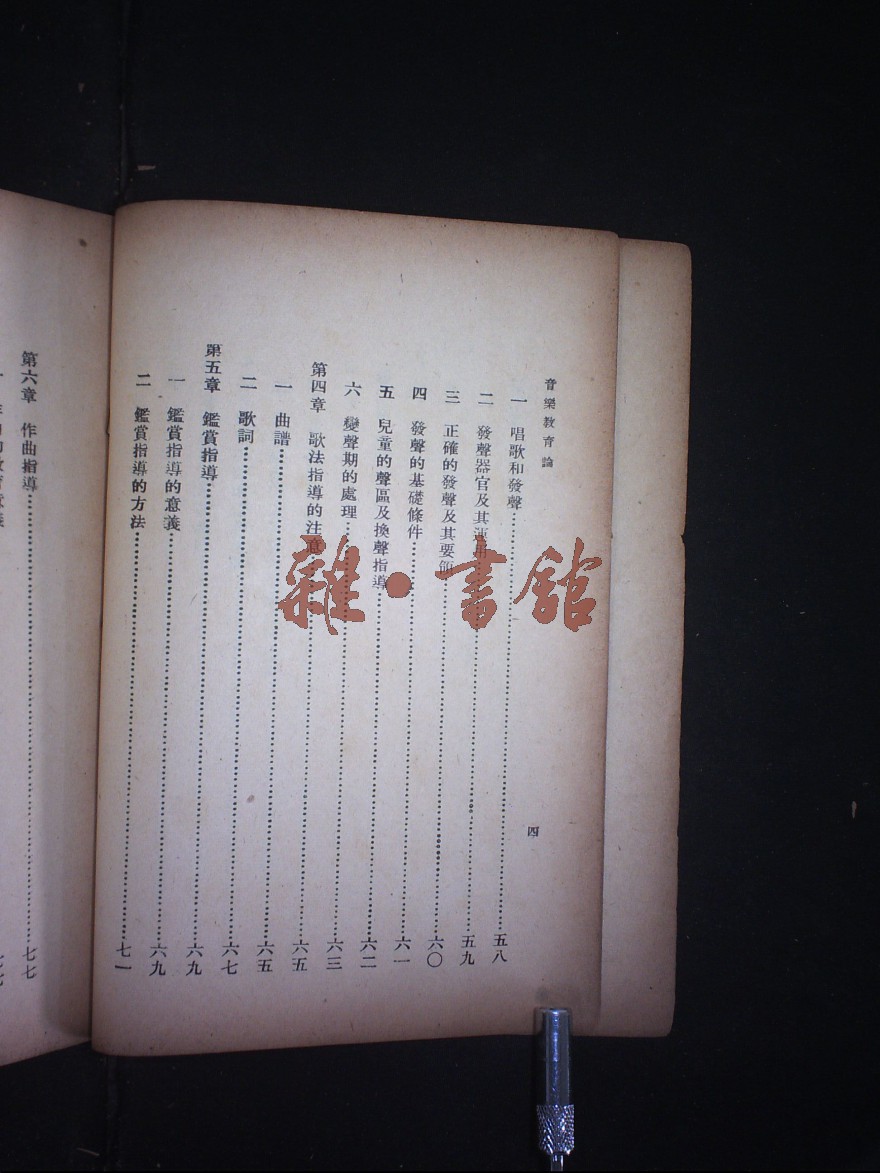 音樂教育論
四
一 唱歌和發聲……五八
二 發聲器官及其運用……五九
三 正確的發聲及其要領……六〇
四 發聲的基礎條件……六一
五 兒童的聲區及換聲指導……六二
六 變聲期的處理……六三
第四章 歌法指導的注意……六五
一 曲譜……六五
二 歌詞……六七
第五章 鑑賞指導……六九
一 鑑賞指導的意義……六九
二 鑑賞指導的方法……七一
第六章 作曲指導……七七
雜·書館